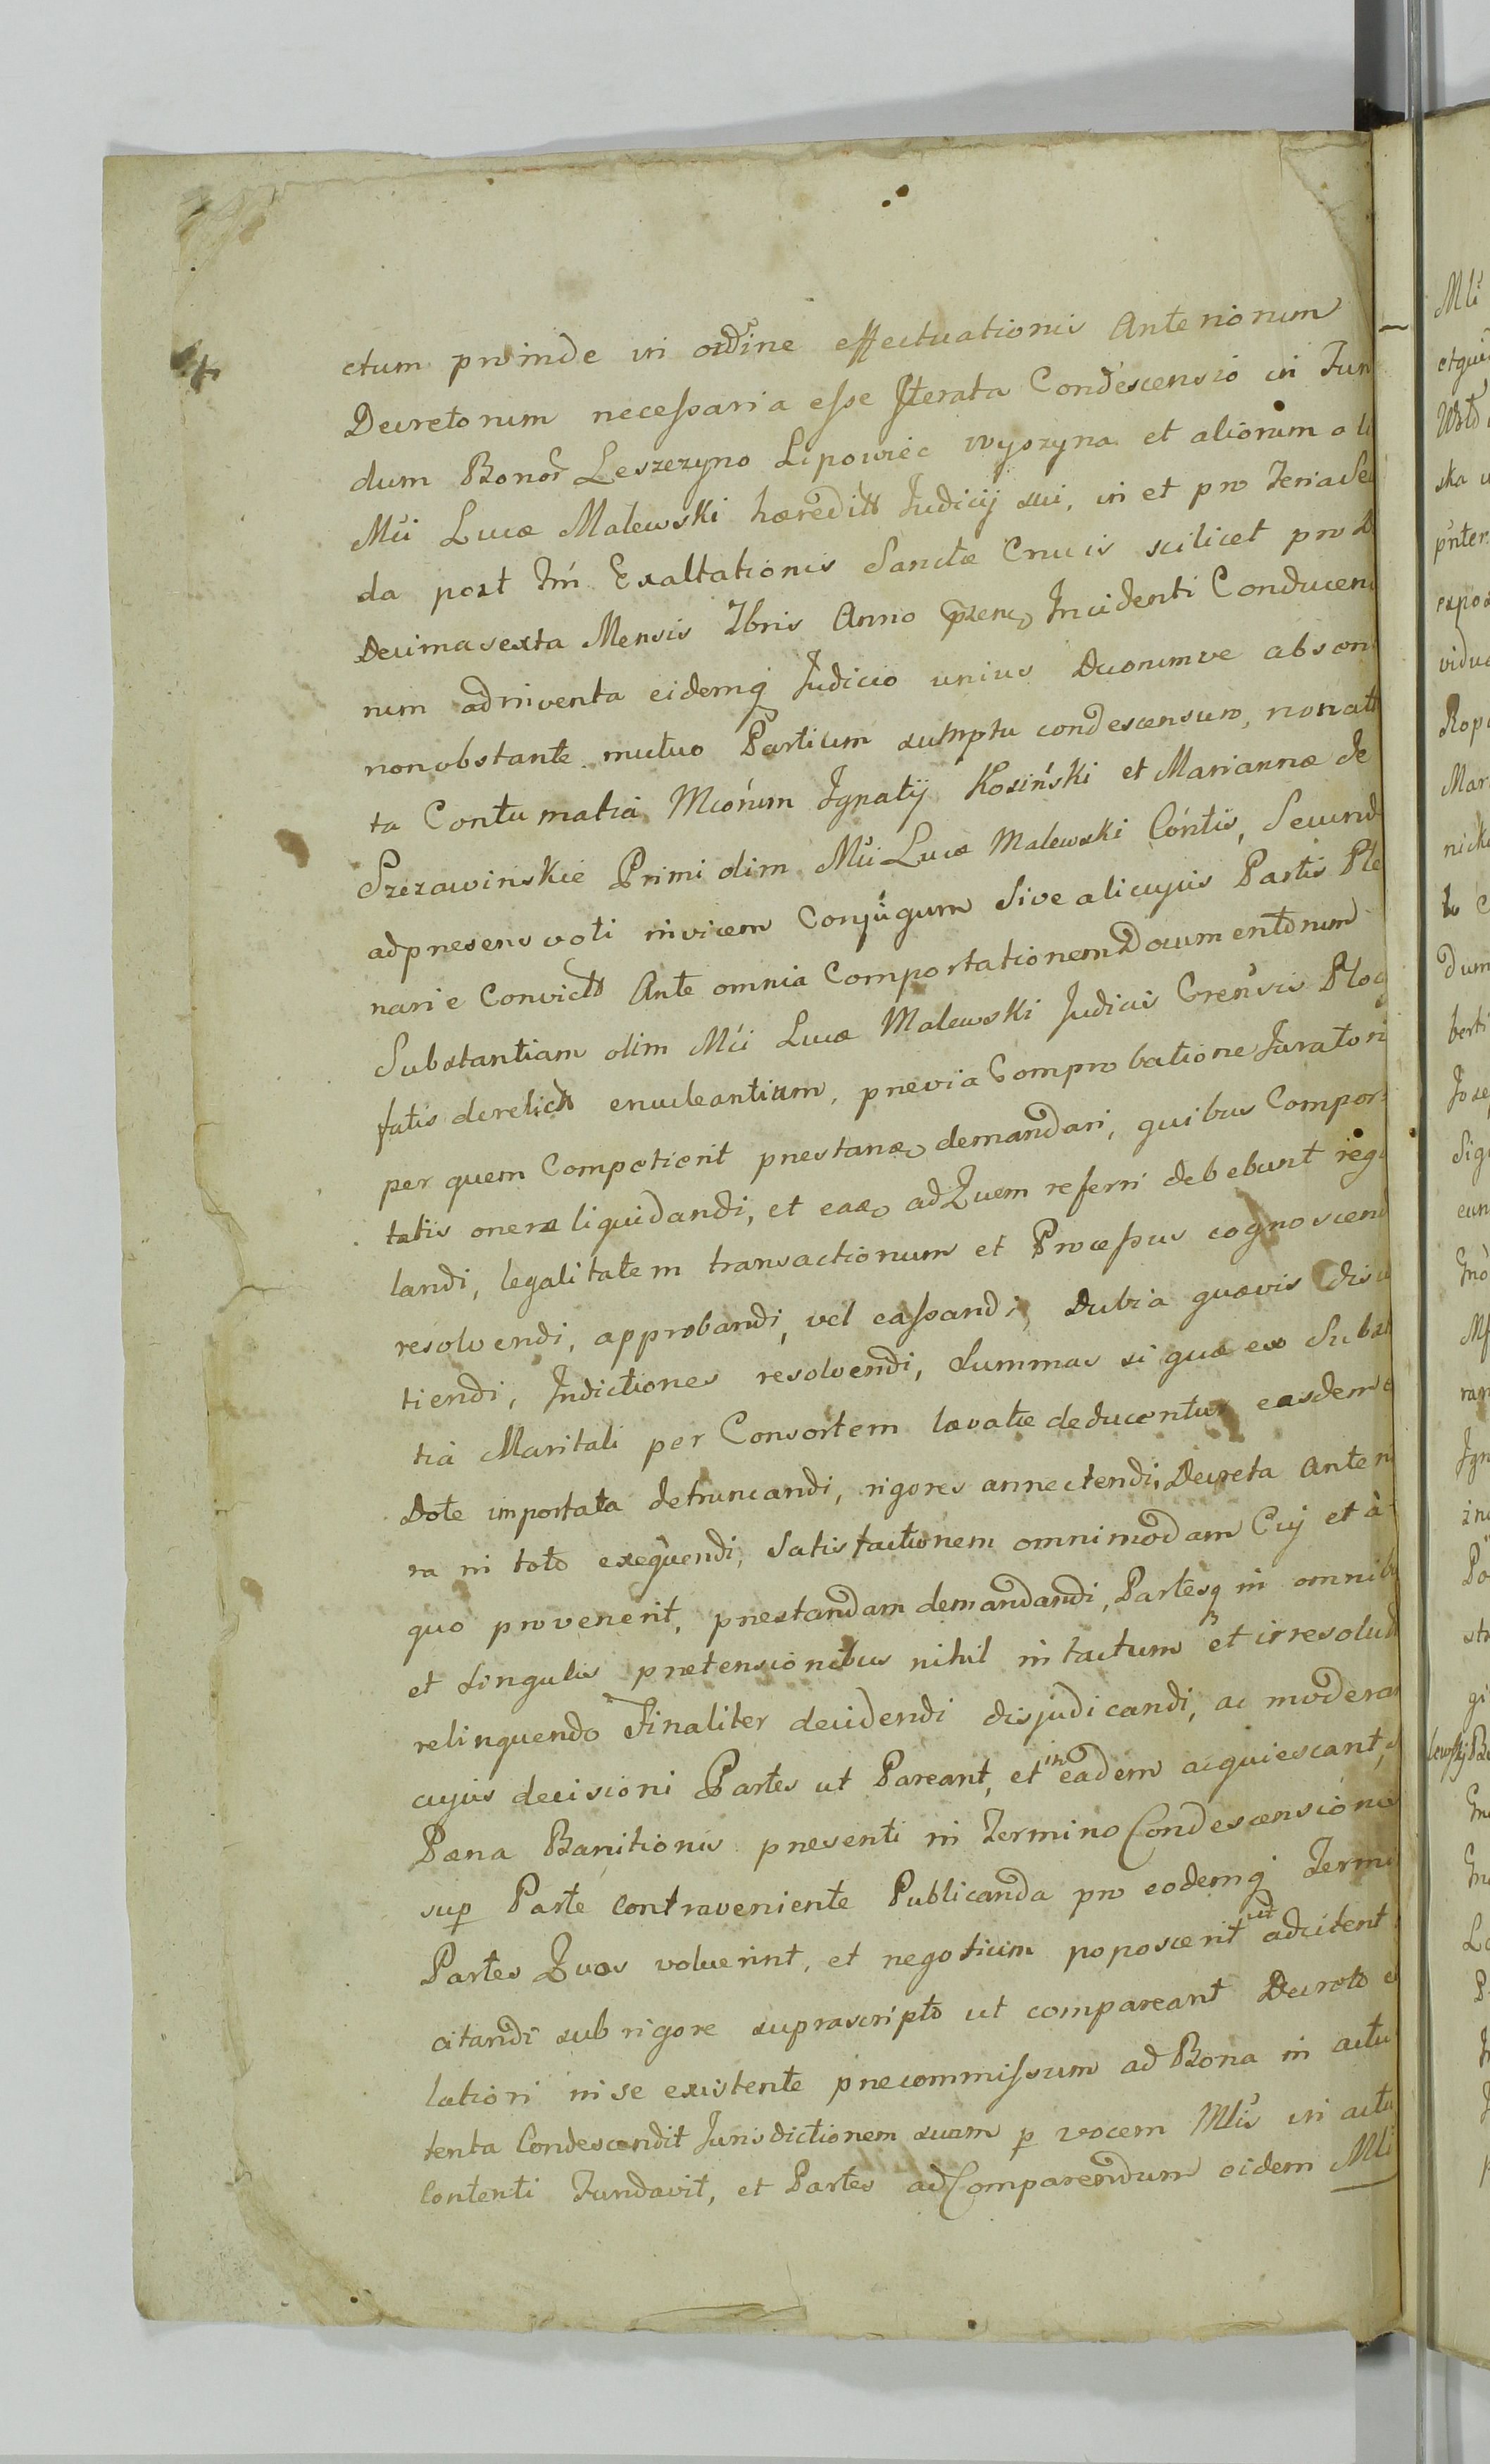 ctum proinde in ordine effectuationis Anteriorum
Decretorum necessaria esse Iterata Condescensio in Fun
dum Bonor Leszczyno Lipowiec Wyszyna et aliorum oli
Mci Lucæ Malewski hæredits Judicij sui, in et pro Feria Secu
da post Fm Exaltationis Sanctæ Crucis scilicet pro D
Decima sexta Mensis 7bris Anno præne Incidenti Conducen
rum adinventa eidemq Judicio unius Duorumve absen
nonobstante mutuo Partium sumptu condescensuro, nonatt
ta Contumatia Mcorum Ignatij Kosiński et Mariannæ de
Szczawinskie Primi olim Mci Lucæ Malewski Contis, Secund
adpresens voti invicem Conjugum Sive alicujus Partis Ple
narie Convicts Ante omnia Comportationem Documentorum
Substantiam olim Mci Lucæ Malewski Judicis Grensis Ploc
fatis derelicts enucleantium, prævia Comprobatione Juratori
per quem Compotierit prestanæ demandari, quibus Compor
tatis onera liquidandi, et eaæ ad Quem referri debebunt regu
landi, legalitatem transactionum et Processus cognoscend
resolvendi, approbandi, vel cassandi, Dubia quævis discu
tiendi, Indictiones resolvendi, Summas si quæ ex Subst
tia Maritali per Consortem levatæ deducentur easdem
Dote importata detruncandi, rigores annectendi, Decreta Anterio
ra in toto exequendi, Satisfactionem omnimodam Cuj et à
quo provenerit, prestandam demandandi, Partesq in omnib
et Singulis prætensionibus nihil intactum et irresolut
relinquendo Finaliter decidendi disjudicandi, ac moderan
cujus decisioni Partes ut Pareant, et in eadem acquiescant, s
Pæna Banitionis presenti in Termino Condescensionis
sup Parte contraveniente Publicanda pro eodemq Termi
Partes Quas voluerint, et negotium poposcerit ut adcitent
citandi sub rigore suprascripto ut compareant Decreto
latiori in se existente præcommissum ad Bona in actu
tenta Condescendit Jurisdictionem suam p vocem Mlis in actu
Contenti Fundavit, et Partes ad Comparendum eidem Mli